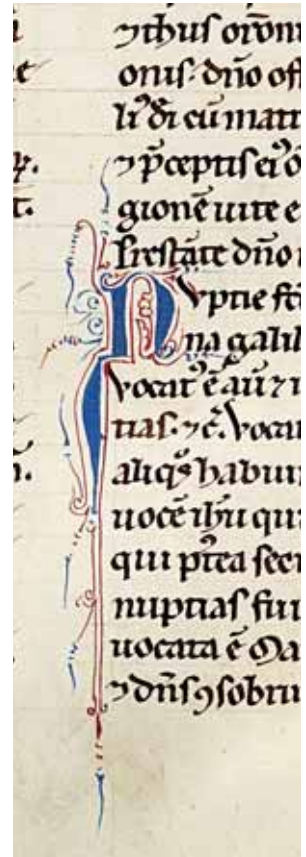 ⁊thus oroni
onis· dño off
li᾽ di cū mat
⁊ p̄ceptis ei᾽ o
gionē uite e
Prestāte dño
Nuptie fc̄
na galil
vocat᾽ ē
tias· ⁊c̄. vocat
aliqˢ habuit
uocē ihu qui
qui p̄tea sec
nuptias fui
uocata ē Ma
⁊ dñs ꝯsobri